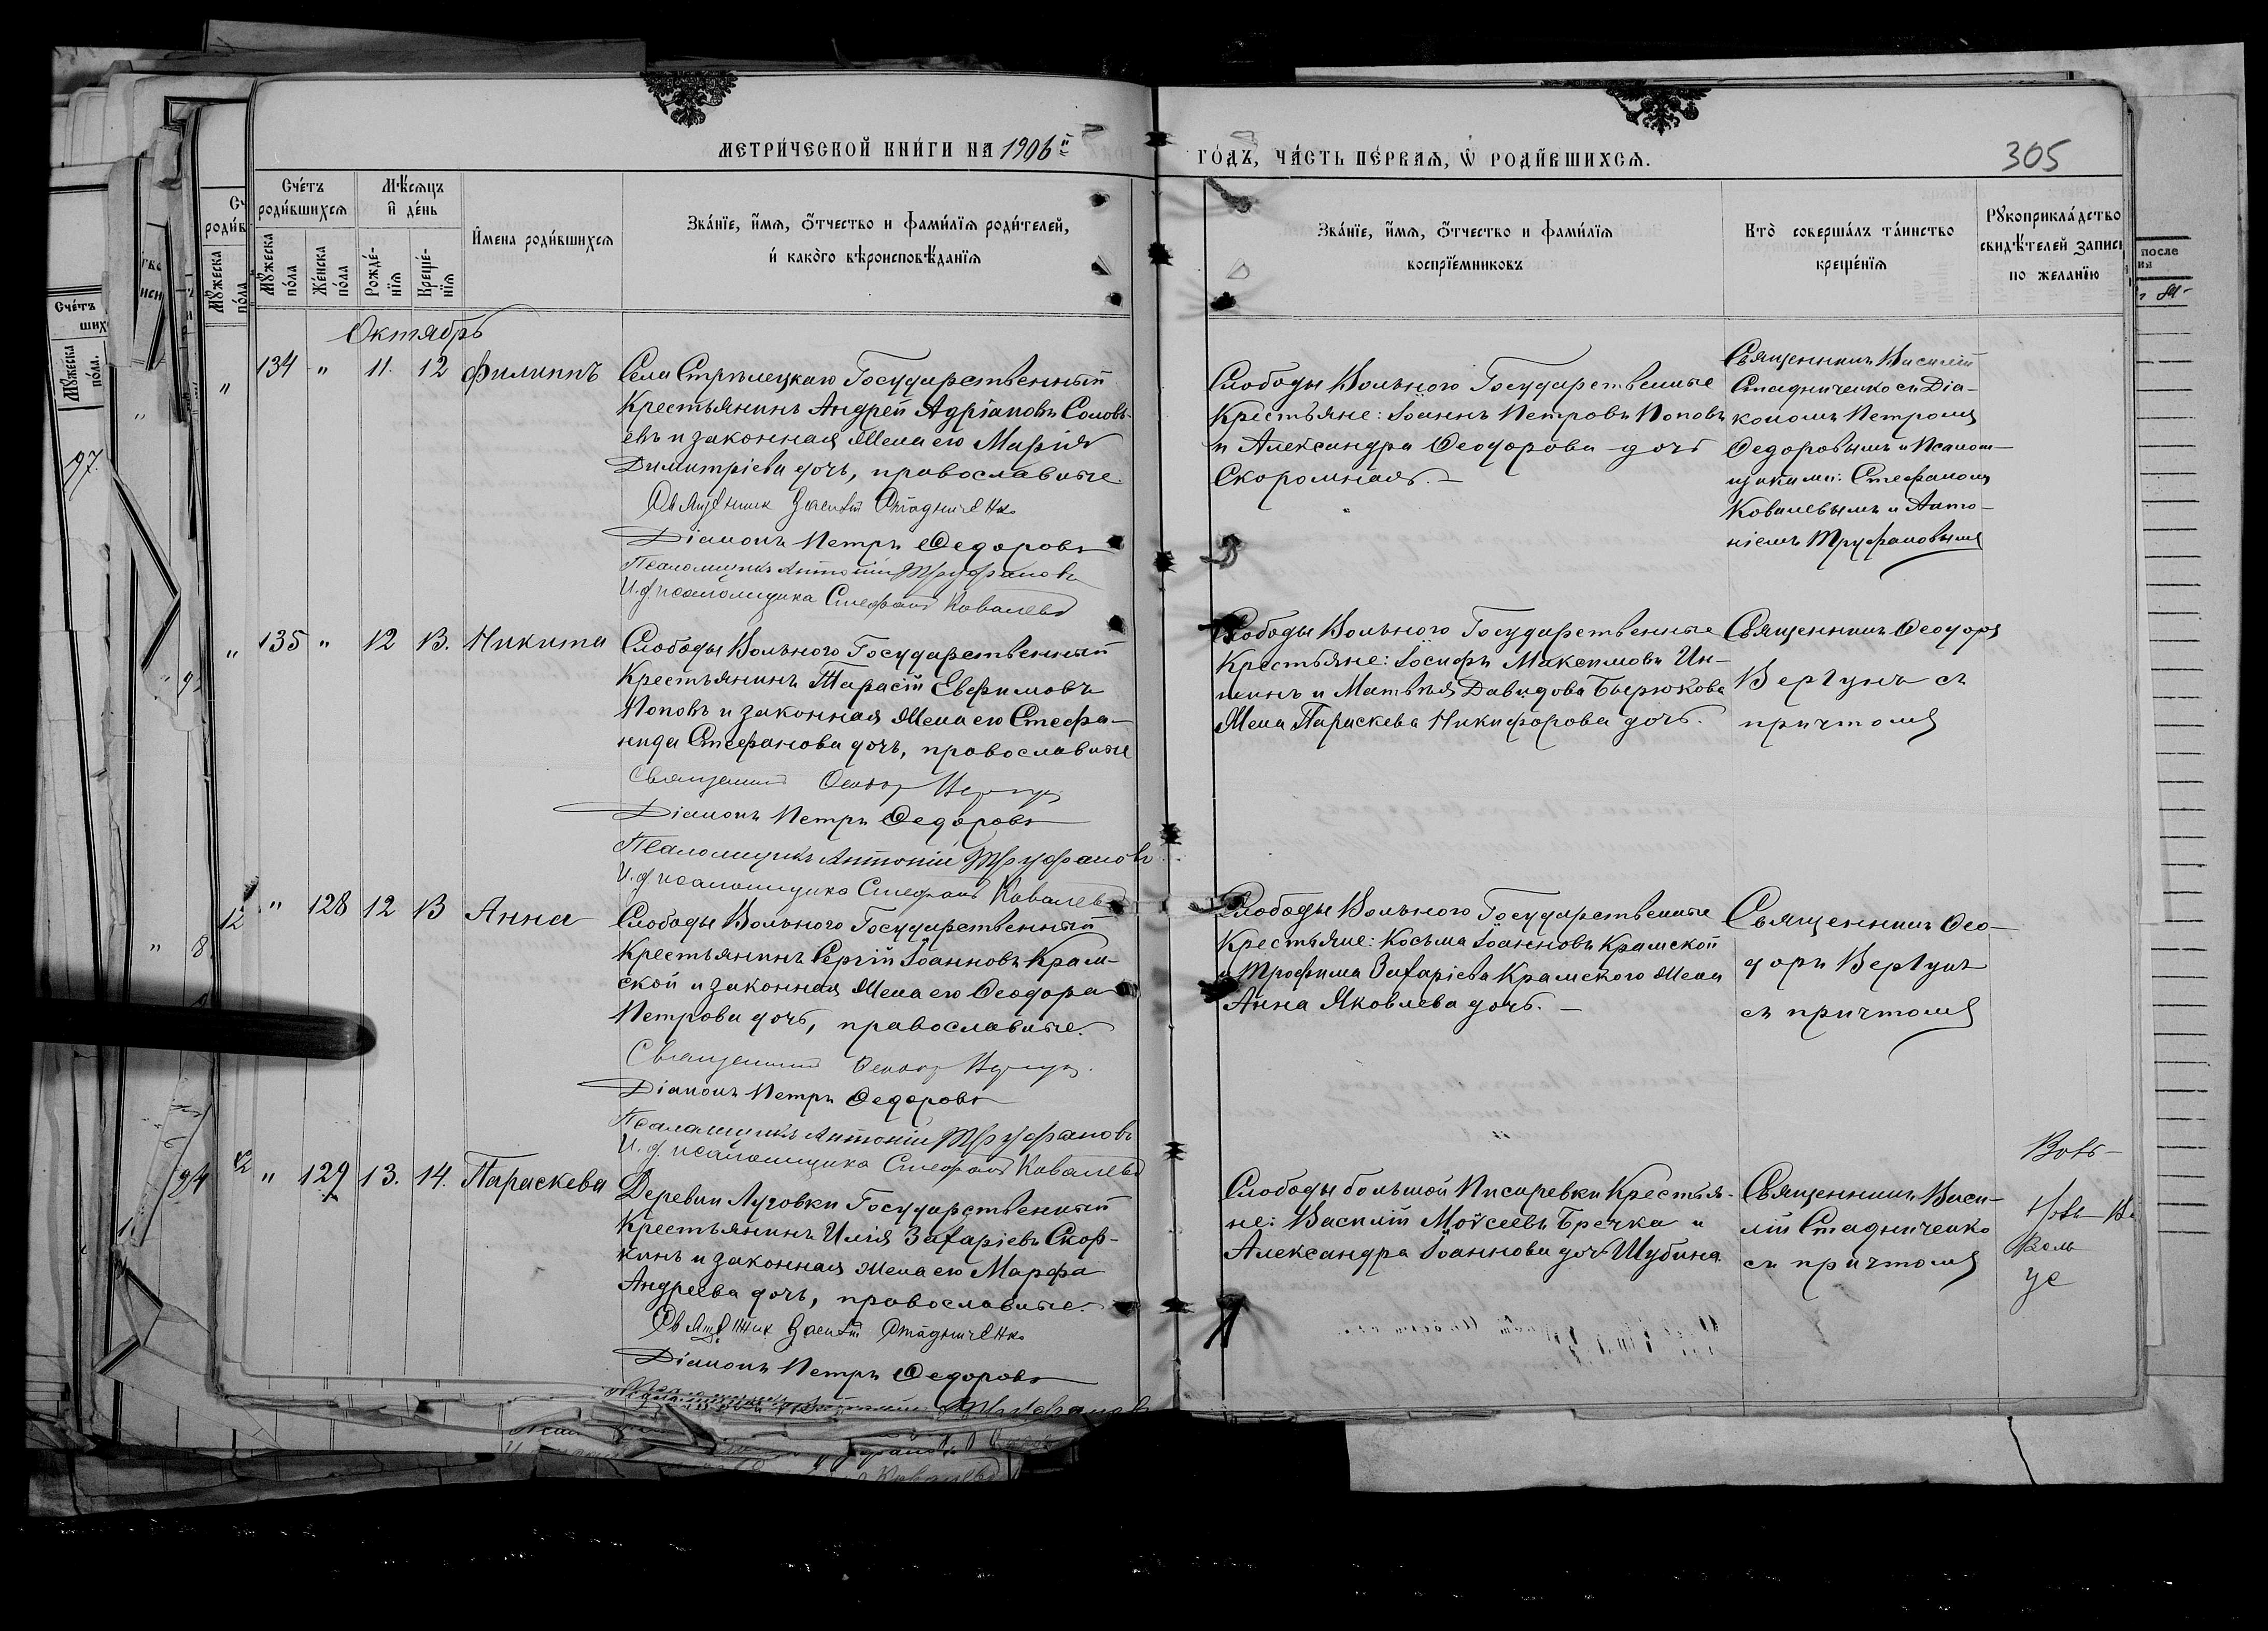 МЕТРИ́ЧЕСКОЙ КНИ́ГИ НА 1906й
ГО́ДЪ, ЧА́СТЬ ПЕ́РВАѦ, Ѡ РОДИ́ВШИХСѦ.
305
Сче́тъ роди́вшихсѧ
Мꙋ́жеска по́ла
Же́нска по́ла
Мѣ́сѧцъ и҆ де́нь
Рожде́нїѧ
Креще́нїѧ
И҆мена роди́вшихсѧ
Зва́нїе, и҆́мѧ, ѻ҆́тчество и фами́лїѧ роди́телей,
и҆ како́гѡ вѣроисповѣ́данїѧ
Зва́нїе, и҆́мѧ, ѻ҆́тчество и фами́лїѧ
воспрїе́мниковъ
Кто̀ соверша́лъ та́инство
креще́нїѧ
Рꙋкоприкла́дство
свидѣ́телей записи
по жела́нїю
Октябрь
134 " 11. 12 Филиппъ
Села Стрѣлецкаго Государственный
Крестьянинъ Андрей Адріановъ Соловь-
евъ и законная жена его Марія
Димитріева дочь, православные.
Священник Василій Стадниченко
Діаконъ Петръ Федоровъ
Псаломщикъ Антоній Труфановъ
И. д. псаломщика Стефанъ Ковалевъ
Слободы Вольного Государственные
Крестьяне: Іоаннъ Петровъ Поповъ
и Александра Феодорова дочь
Скоромная. –
Священникъ Василій
Стадниченко съ Діа-
кономъ Петромъ
Федоровымъ и Псалом-
щиками: Стефаномъ
Ковалевымъ и Анто-
ніемъ Труфановымъ
135 " 12 13. Никита
Слободы Вольного Государственный
Крестьянинъ Тарасій Евфимовъ
Поповъ и законная жена его Стефа-
нида Стефанова дочь, православные
Священникъ Феодоръ Вергунъ
Діаконъ Петръ Федоровъ
Псаломщикъ Антоній Труфановъ
И. д. псаломщика Стефанъ Ковалевъ
Слободы Вольного Государственные
Крестьяне: Іосифъ Максимовъ Ин-
шинъ и Матвѣя Давидова Бирюкова
жена Параскева Никифорова дочь.
Священникъ Феодоръ
Вергунъ съ
причтомъ
" 128 12 13 Анна
Слободы Вольного Государственный
Крестьянинъ Сергій Іоанновъ Крам-
ской и законная жена его Феодора
Петрова дочь, православные.
Священникъ Феодоръ Вергунъ.
Діаконъ Петръ Федоровъ
Псаломщикъ Антоній Труфановъ
И. д. псаломщика Стефанъ Ковалевъ
Слободы Вольного Государственные
Крестьяне: Косьма Іоанновъ Крамской
и Трофима Захаріева Крамского жена
Анна Яковлева дочь. –
Священникъ Фео-
доръ Вергунъ
съ причтомъ
" 129 13. 14. Параскева
Деревни Луговки Государственный
Крестьянинъ Илія Захаріевъ Скор-
кинъ и законная жена его Марфа
Андреева дочь, православные.
Священник Василій Стадниченко
Діаконъ Петръ Федоровъ
Слободы большой Писаревки Крестья-
не: Василій Моѵсеевъ Бречка и
Александра Іоаннова дочь Шубина.
Священникъ Васи-
лій Стадниченко
съ причтомъ